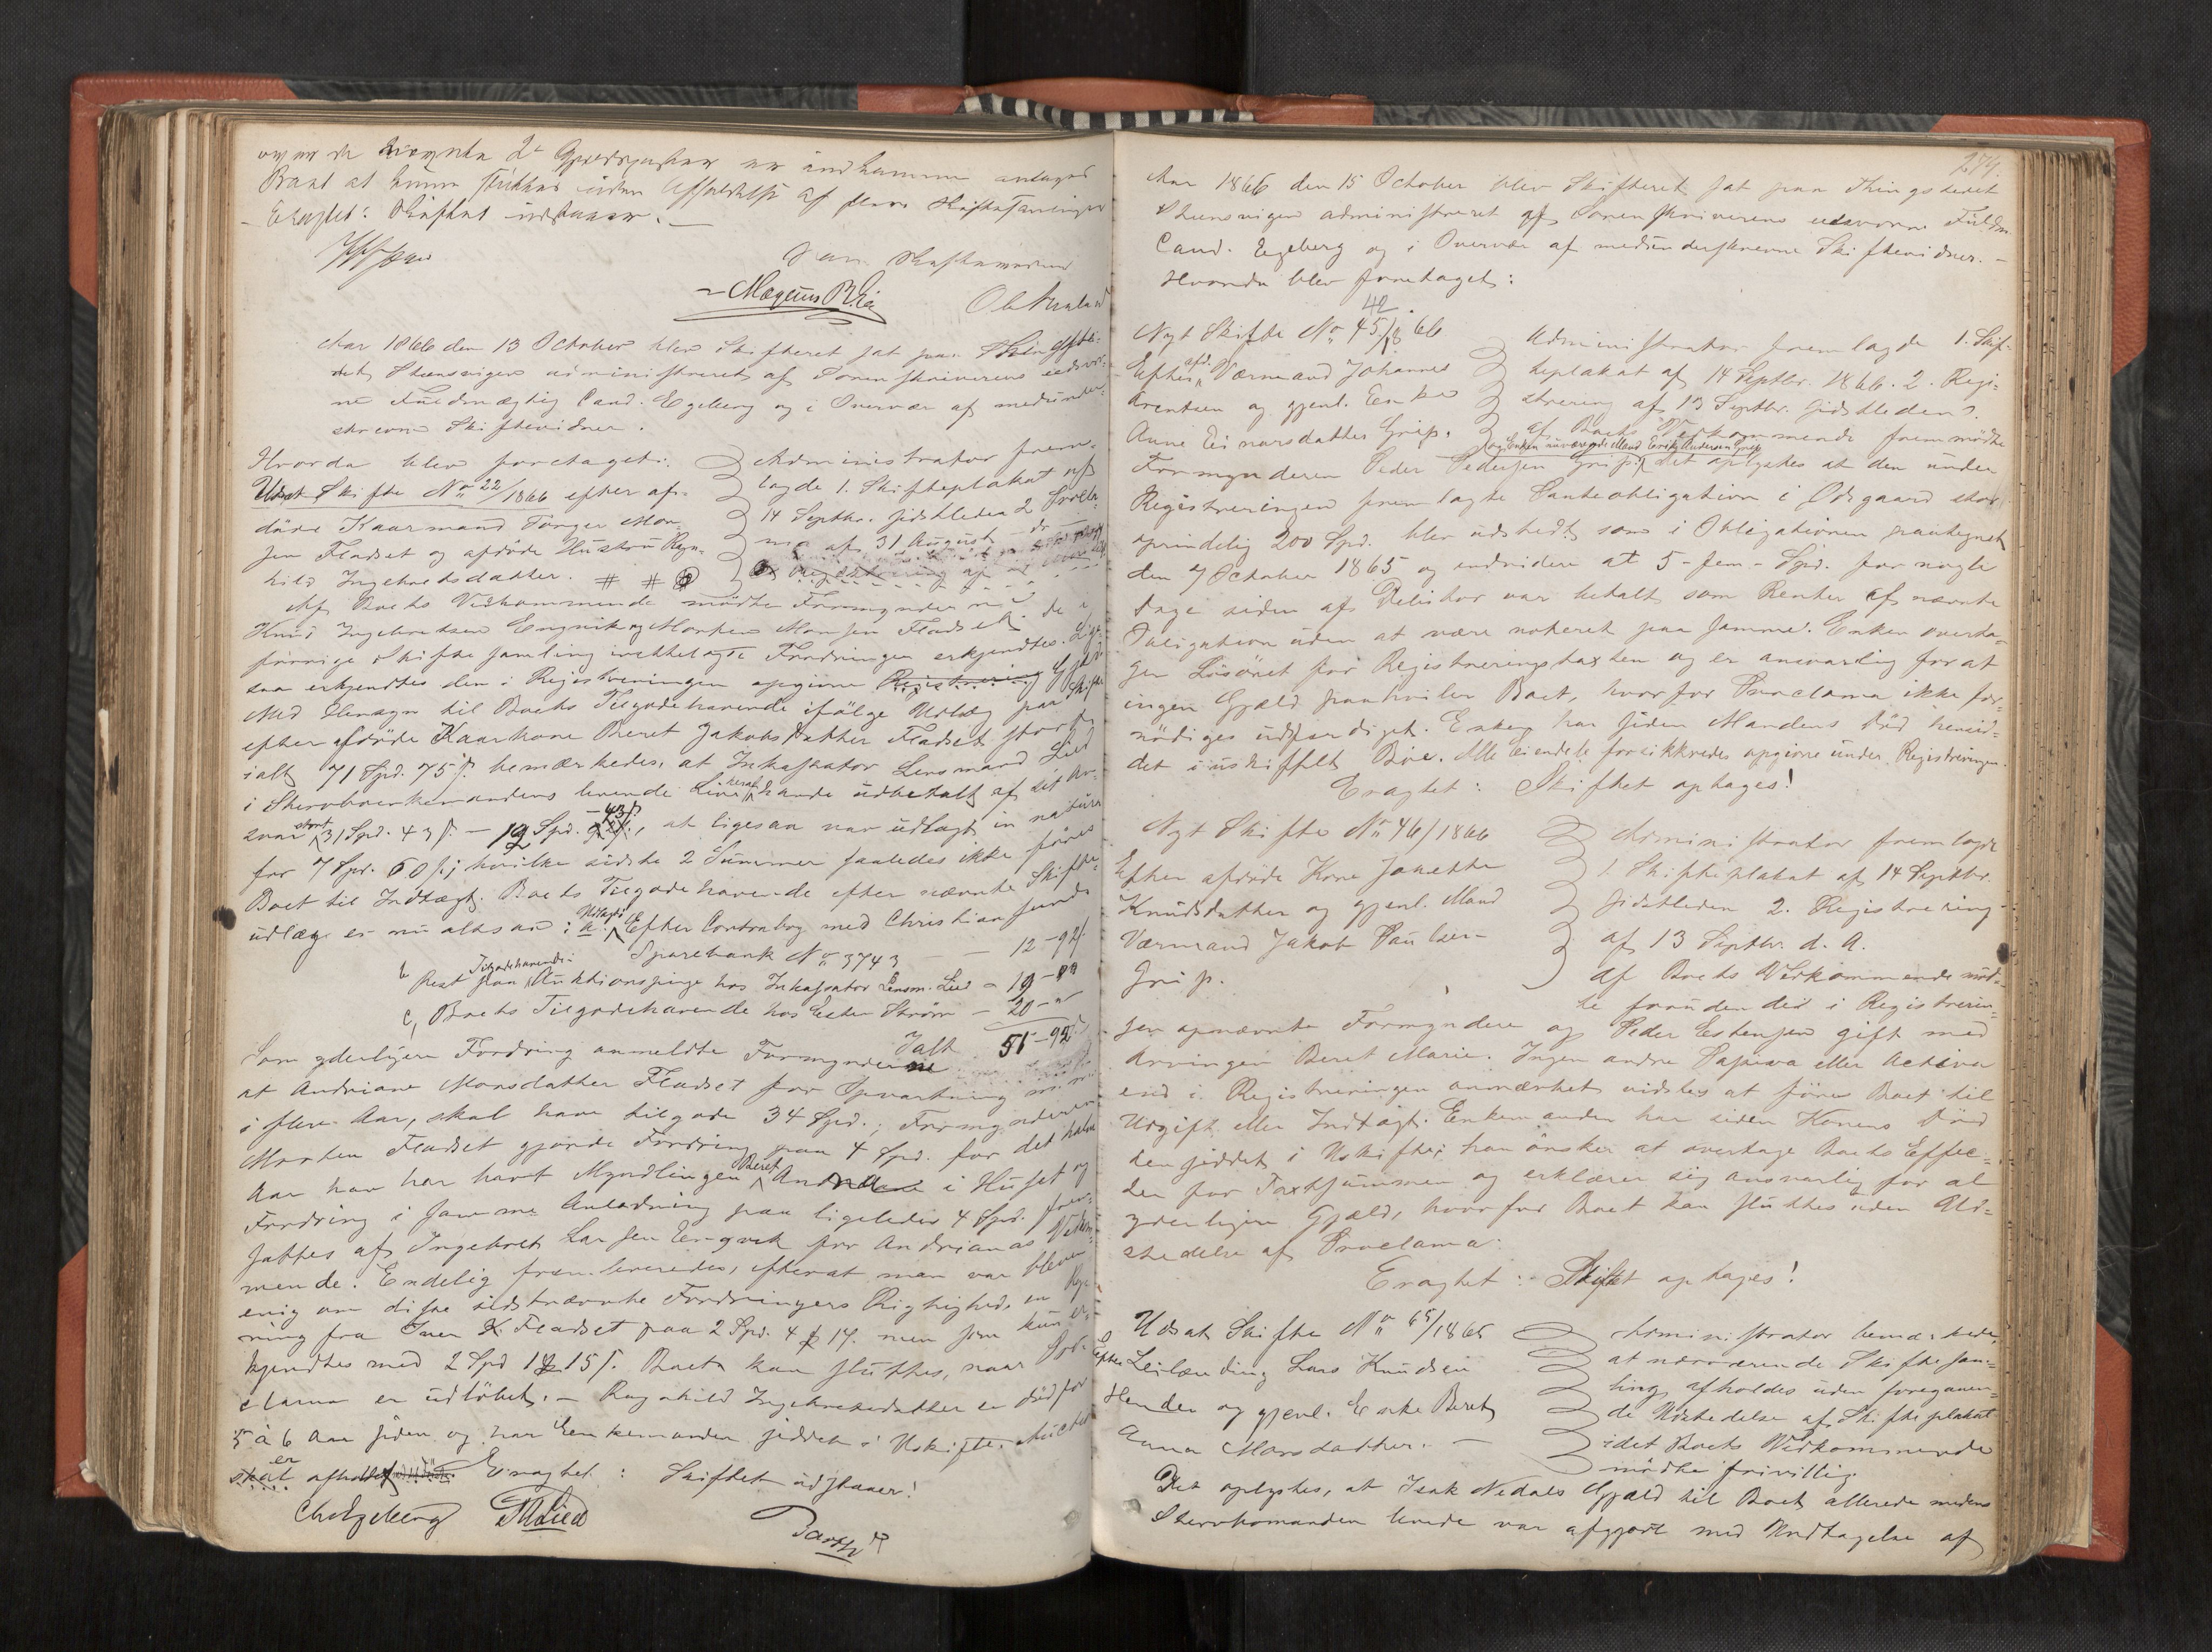 Brant at kunne sluttes uden Afholdelse af flere Skiftesamlinger
– Eragtet: Skiftet udstaaer. –
som Skiftevidner
Magnus B. Lia
Aar 1866 den 13 October blev Skifteret sat paa Thingste-
det Steensvigen administreret af Sorenskriverens edsvor-
ne Fuldmægtig Cand. Egeberg og i Overvær af medunder-
skrevne Skiftevidner.
Hvorda blev foretaget:
Udsat Skifte No 22/1866 efter af-
døde Kaarmand Torger Mon-
sen Fladset og afdøde Hustru Ragn-
hild Ingebretsdatter. # #
Administrator frem-
lagde 1. Skifteplakat af
14 Septbr. sidstleden 2 Procla-
ma af 31 August
Af Boets Vedkommende mødte Formynderne
Knud Ingebretsen Engvik og Morten Monsen Fladset. De i
forrige Skiftesamling indtalte Fordringer erkjendtes. Lige-
saa erkjendtes den i Registreringen opgivne Registrering Gjæld
Med Hensyn til Boets Tilgodehavende ifølge Udlæg paa Skifte
efter afdøde Kaarkone Beret Jakobsdatter Fladset stort
ialt 71 Spd. 75 s. bemærkedes, at Inkassator Lensmand Lied
i Stervboenkemandens levende Live havde udbetalt af sit An-
svar stort 31 Spd. 43 s. – 12 Spd. – 43 s, at ligesaa var udlagt in natura
for 7 Spd. 60 s.; hvilke sidste 2 Summer saaledes ikke føres
Boet til Indtægt. Boets Tilgodehavende efter nævnte Skifte-
udlæg er nu altsaa: a. Udlagt Efter Contrabog med Christiansunds
Sparebank No 3743 – – 12 – 92
b Rest Tilgodehavende paa Auktionspenge hos Inkassator Lensm. Lied – 19 – „
c, Boets Tilgodehavende hos Esten Strøm – 20 – „
Ialt 51 – 92
Som yderligere Fordring anmeldte Formynderne
at Andriane Monsdatter Fladset for Opvartning
i flere Aar, skal have tilgode 34 Spd.; Formynderen
Morten Fladset gjorde Fordring paa 4 Spd. for det halve
Aar han har havt Myndlingen Beret Andriane i Huset og
Fordring i samme Anledning paa ligeledes 4 Spd. frem-
sattes af Ingebret Larsen Engvik for Andrianas Vedkom-
mende. Endelig fremleveredes, efterat man var bleven
enig om disse sidstnævnte Fordringers Rigtighed, en Reg-
ning fra Iver K. Fladset paa 2 Spd. 4 ƒ 17. men som kun er-
kjendtes med 2 Spd 1 ƒ 15 s. Boet kan sluttes, naar Pro-
clama er udløbet. – Ragnhild Ingebretsdatter er død for
5 à 6 Aar siden og har Enkemanden siddet i Uskifte. Auction
skal er afholdt Eragtet: Skiftet udstaaer!
Ch Egeberg
274.
Aar 1866 den 15 October blev Skifteret sat paa Thingstedet
Steensvigen administreret af Sorenskriverens edsvorne Fuldm
Cand. Egeberg og i Overvær af medunderskrevne Skiftevidner. –
Hvorda blev foretaget:
42
Nyt Skifte No 45/1866
Efter afd. Værmand Johannes
Arentsen og gjenl. Enke
Anne Einarsdatter Grip.
Administrator fremlagde 1. Skif-
teplakat af 14 Septbr. 1866. 2. Regi-
strering af 13 Septbr. sidstleden.
Af Boets Vedkommende fremmødte
og Enkens nuværende Mand Enok Andersen Grip
Formynderen Peder Pedersen Grip. Det oplystes at den under
Registreringen fremlagte Panteobligation i Odsgaard stor
oprindelig 200 Spd. blev udstedt som i Obligationen paategnet
den 7 October 1865 og endvidere at 5 – fem – Spd. for nogle
Dage siden af Debitor var betalt som Renter af nævnte
Obligation uden at være noteret paa samme. Enken overta-
ger Løsøret for Registreringstaxten og er ansvarlig for at
ingen Gjæld paahviler Boet, hvorfor Proclama ikke for-
nødiges udfærdiget. Enken har siden Mandens Død hensid-
det i uskiftet Boe. Alle Eiendele forsikkredes opgivne under Registreringen.
Eragtet: Skiftet optages!
Nyt Skifte No 46/1866
Efter afdøde Kone Janethe
Knudsdatter og gjenl. Mand
Værmand Jakob Paulsen
Grip.
Administrator fremlagde
1 Skifteplakat af 14 Septbr.
sidstleden 2. Registrering
af 13 Septbr. d. A.
Af Boets Vedkommende mød-
te foruden de i Registrerin-
gen opnævnte Formyndere og Peder Estensen gift med
Arvingen Beret Marie. Ingen andre Passiva eller Activa
end i Registreringen anmærket vidstes at føres Boet til
Udgift eller Indtægt. Enkemanden har siden Konens Død
hensiddet i Uskifte; han ønsker at overtage Boets Effec-
ter for Taxtsummen og erklærer sig ansvarlig for al
yderligere Gjæld, hvorfor Boet kan sluttes uden Ud-
stedelse af Proclama:
Eragtet: Skiftet optages!
Udsat Skifte No 65/1865
Efter Leilænding Lars Knudsen
Henden og gjenl. Enke Beret
Anna Monsdatter. –
Administrator bemærkede,
at nærværende Skiftesam-
ling afholdes uden foregaaen-
de Udstedelse af Skifteplakat
idet Boets Vedkommende
mødte frivillig.
Det oplystes, at Isak Nedals Gjæld til Boet allerede medens
Stervbomanden levede var afgjort med Undtagelse af